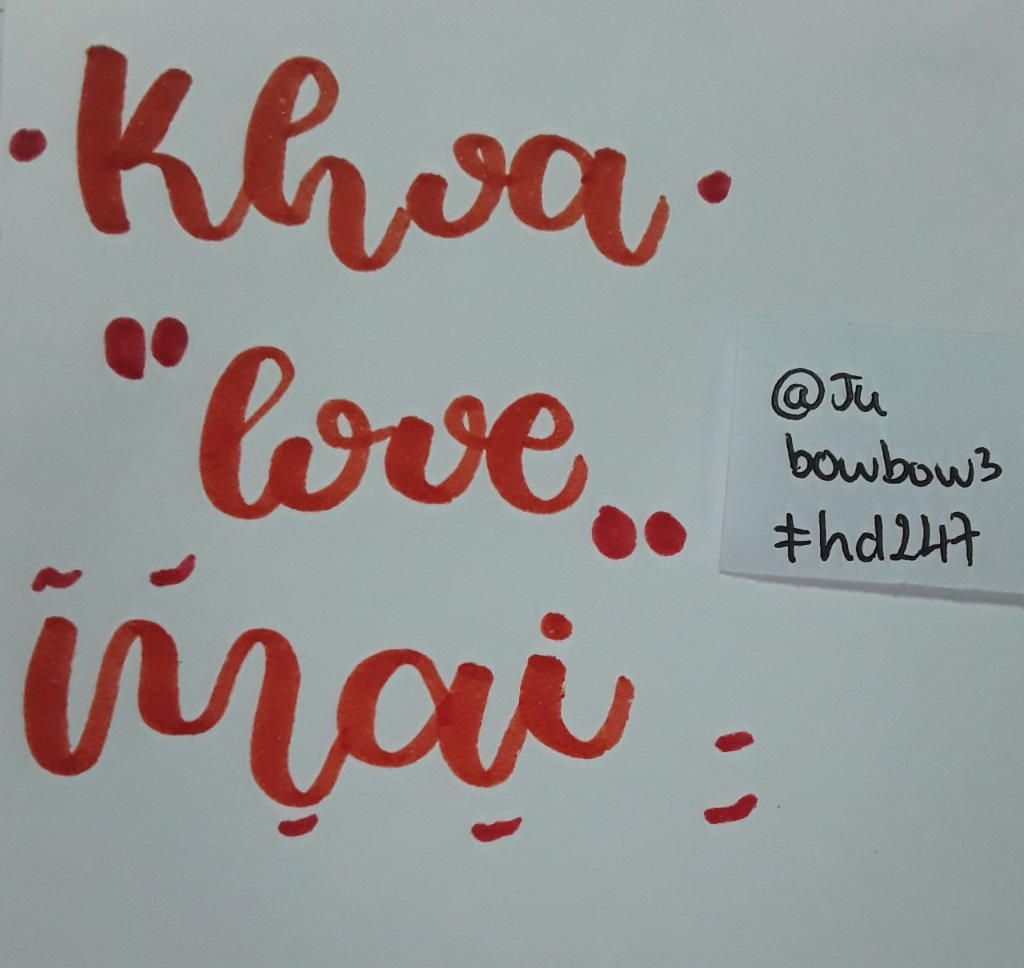 · Khoa ·
"love"
mai
@Ju
bowbow3
#hd247